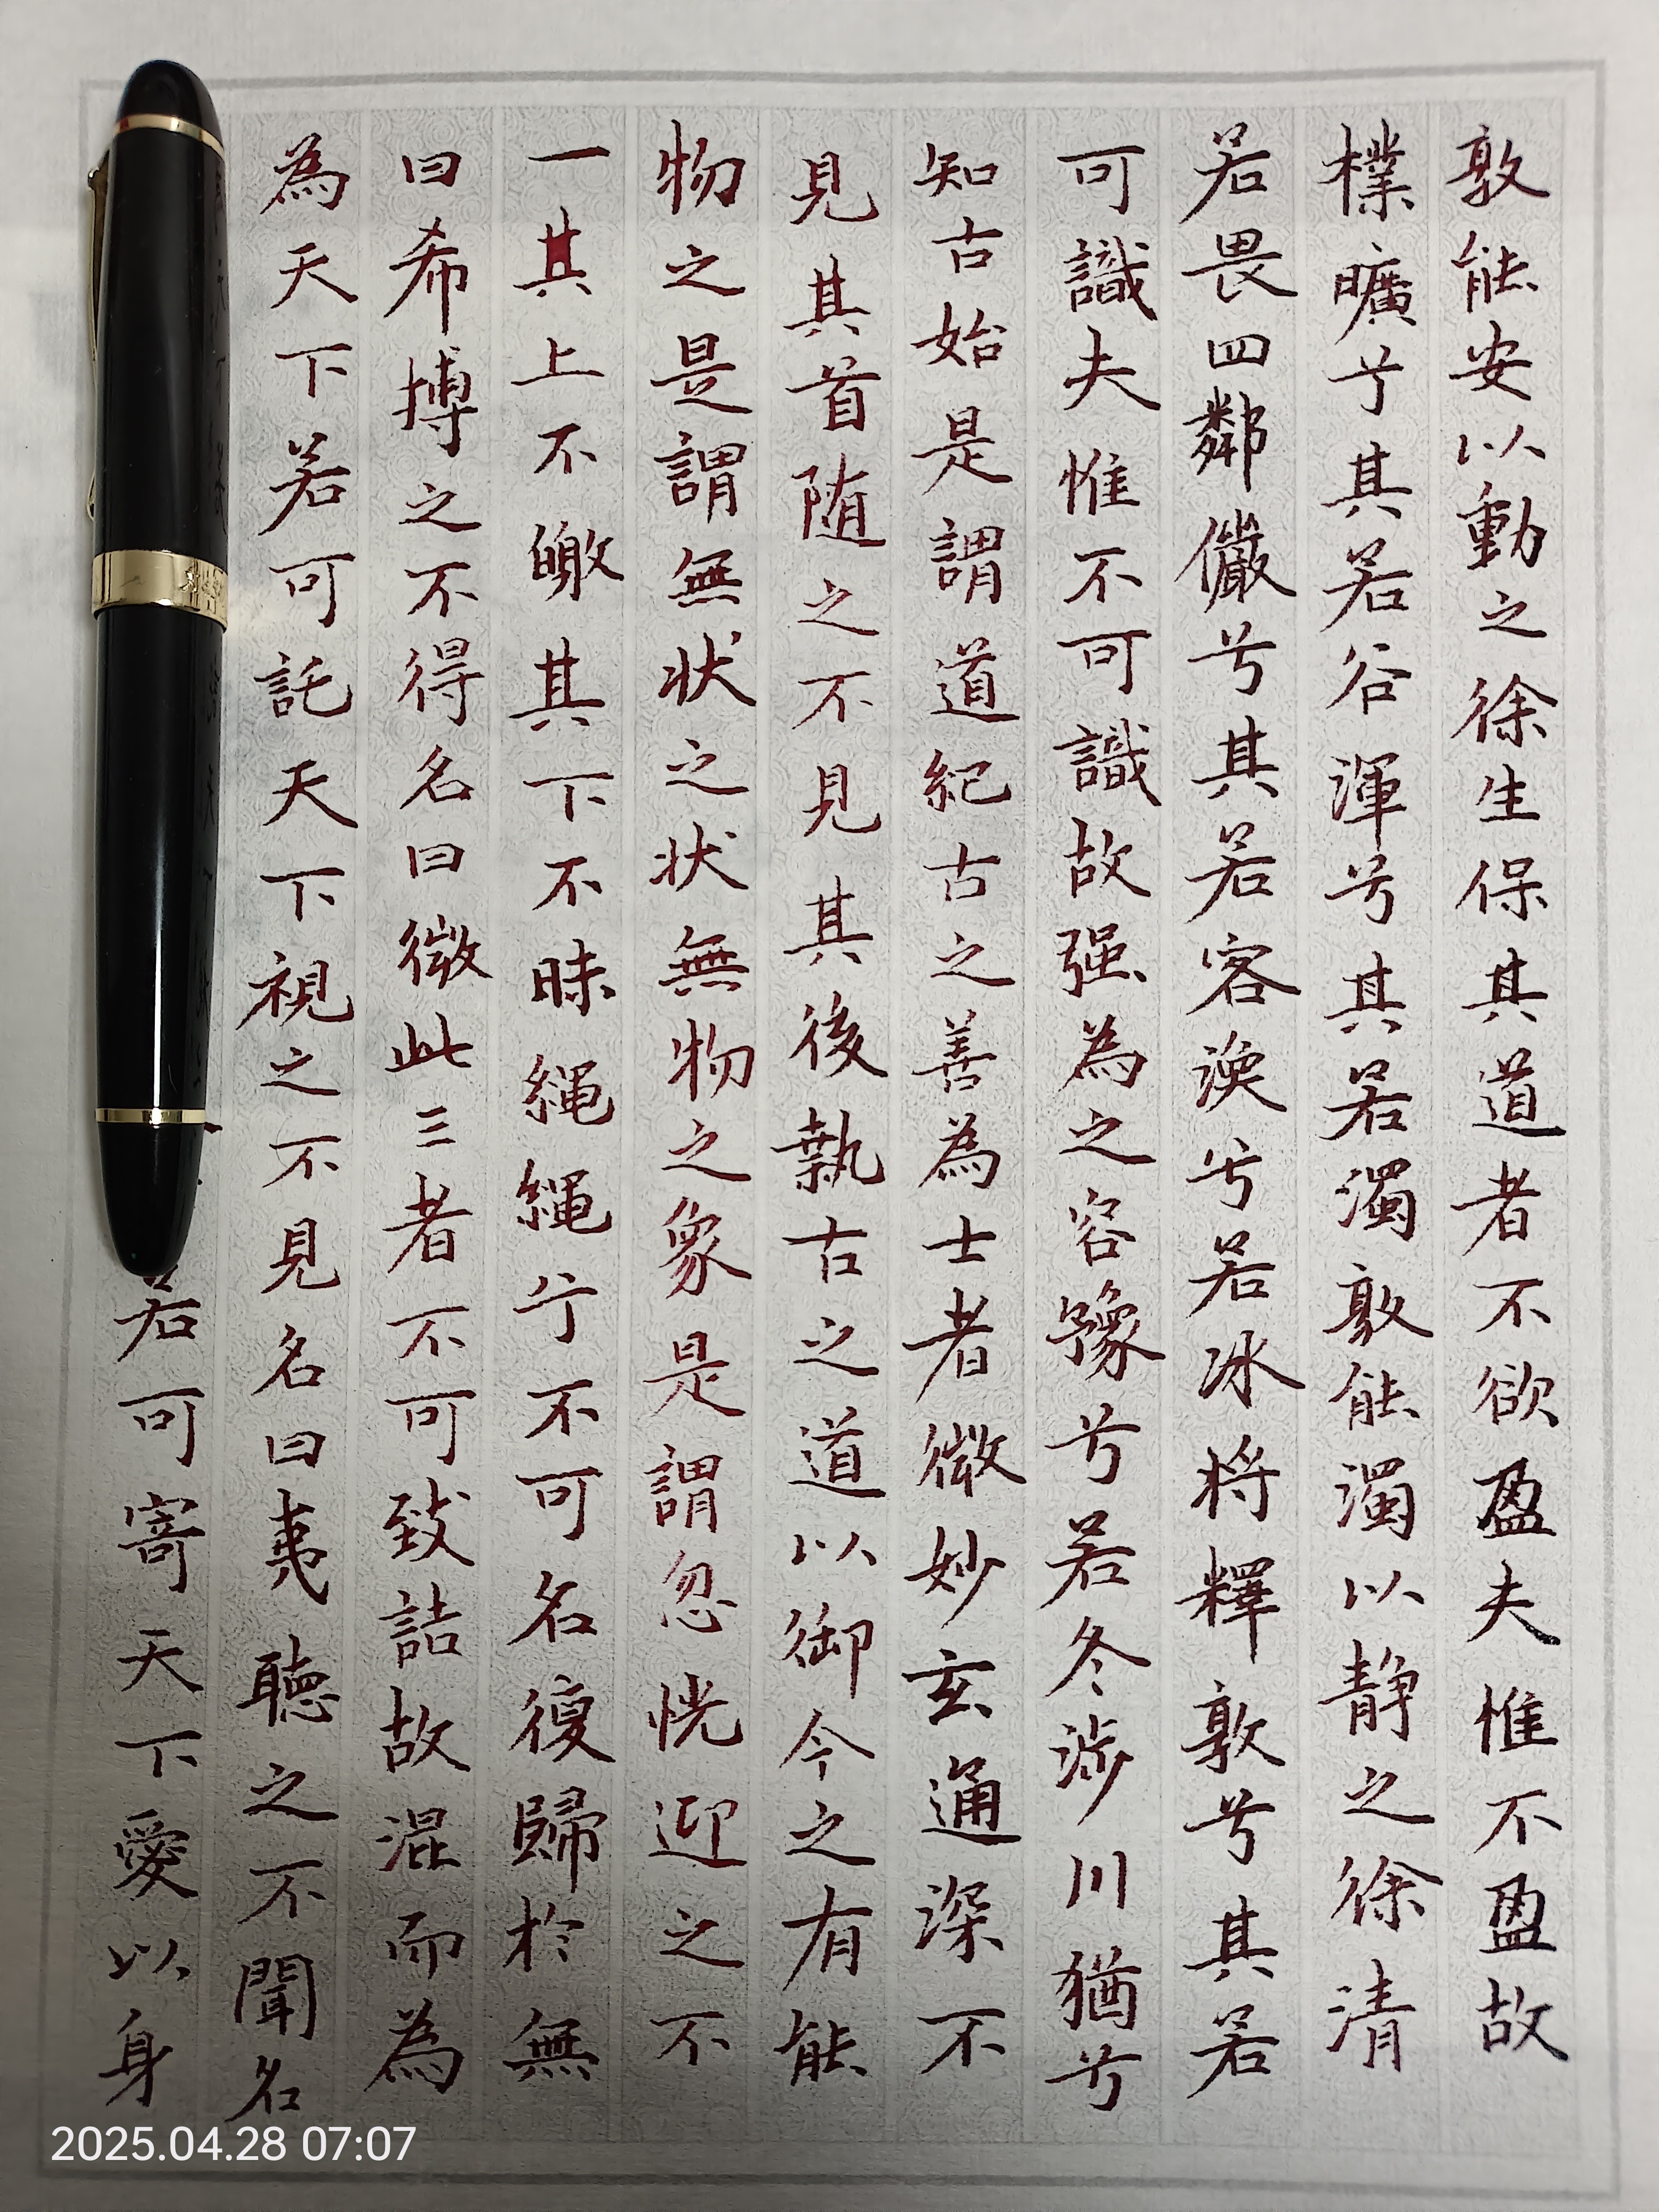 若可寄天下愛以身
為天下若可託天下視之不見名曰夷聽之不聞名
曰希搏之不得名曰微此三者不可致詰故混而為
一其上不皦其下不昧繩繩兮不可名復歸於無
物之是謂無狀之狀無物之象是謂忽恍迎之不
見其首随之不見其後執古之道以御今之有能
知古始是謂道紀古之善為士者微妙玄通深不
可識夫惟不可識故强為之容豫兮若冬涉川猶兮
若畏四鄰儼兮其若客渙兮若冰将釋敦兮其若
樸曠兮其若谷渾兮其若濁敦能濁以静之徐清
敦能安以動之徐生保其道者不欲盈夫惟不盈故
2025.04.28 07:07